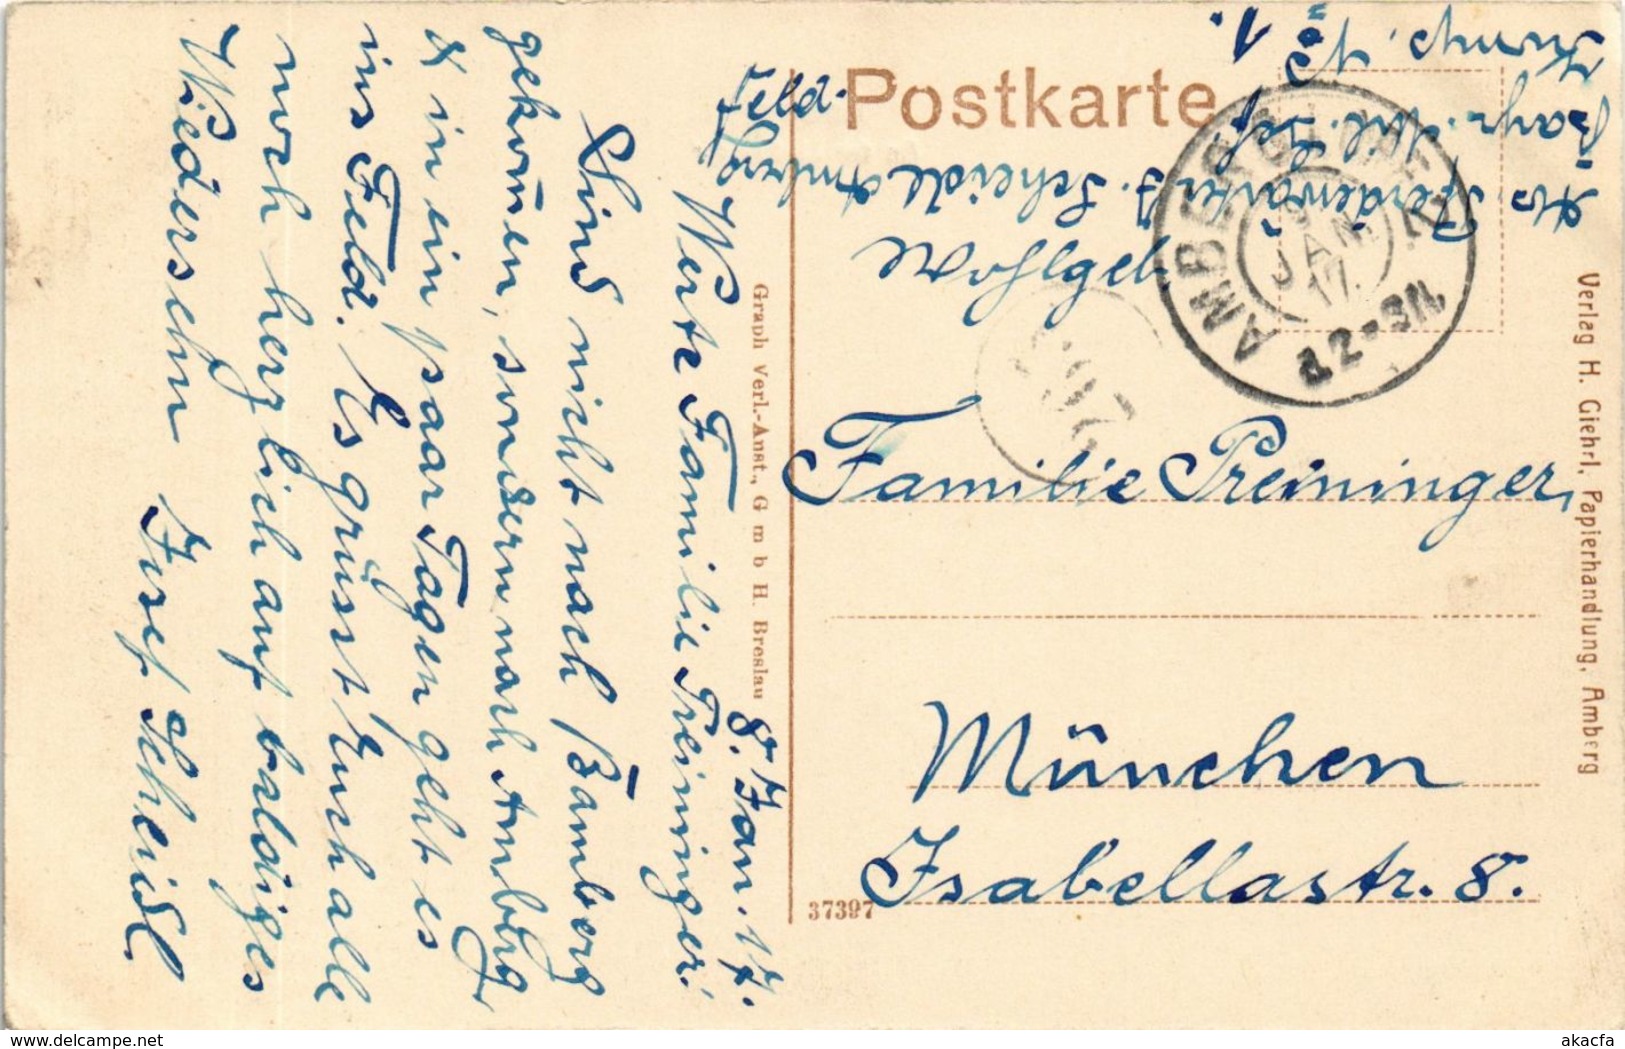 Feld-
Postkarte
Familie Preininger,
München
Isabellastr. 8.
8. Jan. 17.
Werte Familie Preininger!
Sind nicht nach Bamberg
gekom̄en, sondern nach Amberg,
& in ein paar Tagen geht es
ins Feld. Es grüsst Euch alle
noch herzlich auf baldiges
Wiedersehn Josef Scheidl
J. Scheidl Amberg
Bayr.
Komp.
1.
AMBERG
JAN
17.
12-3N.
Graph Verl.-Anst., G m b H. Breslau
37397
Verlag H. Giehrl, Papierhandlung, Amberg
delcampe.net
akacfa